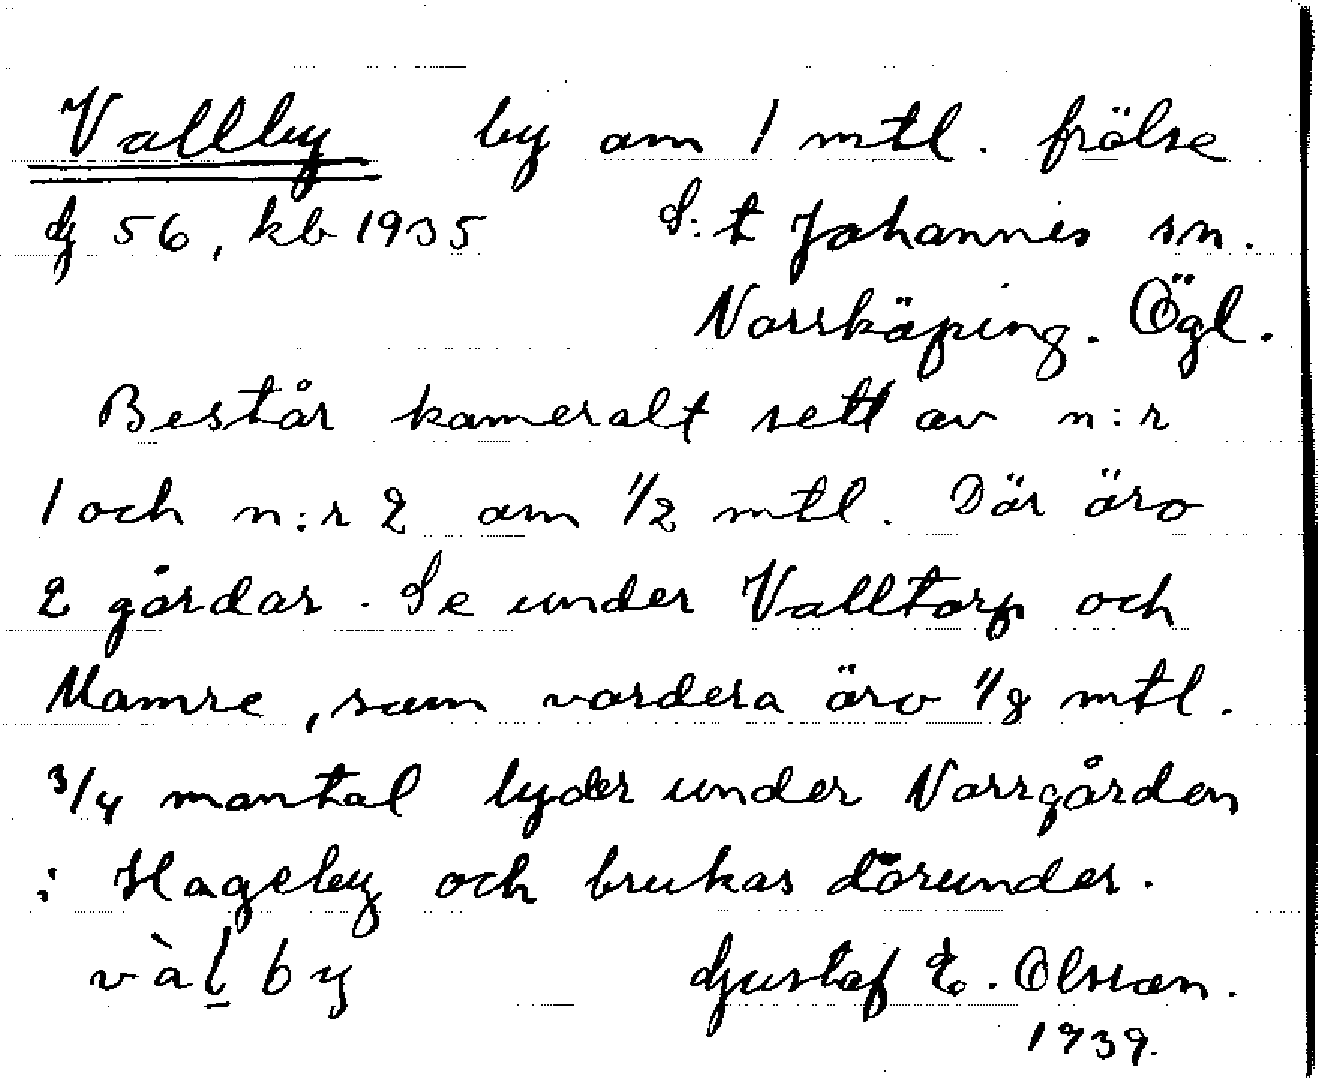 Vallby by om 1 mtl. frälse
dj 56, kb 1935 S:t Johannis sn.
Norrköping. Ögl.
Består kameralt sett av n:r
1 och n:r 2 om 1/2 mtl. Där äro
2 gårdar. Se under Valltorp och
Mamre, som vardera äro 1/8 mtl.
3/4 mantal lyder under Norrgården
i Hageby och brukas därunder.
vàl̲by Gustaf E. Olsson.
1939.